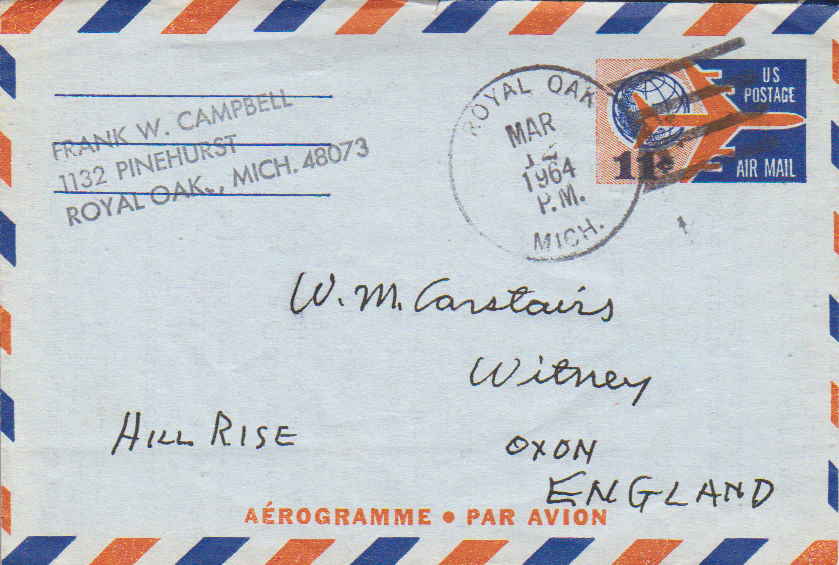 FRANK W. CAMPBELL
1132 PINEHURST
ROYAL OAK, MICH. 48073
ROYAL OAK
MAR
1964
P.M.
MICH.
US
POSTAGE
11¢
AIR MAIL
W. M. Carstairs
Witney
HILL RISE
OXON
ENGLAND
AÉROGRAMME • PAR AVION